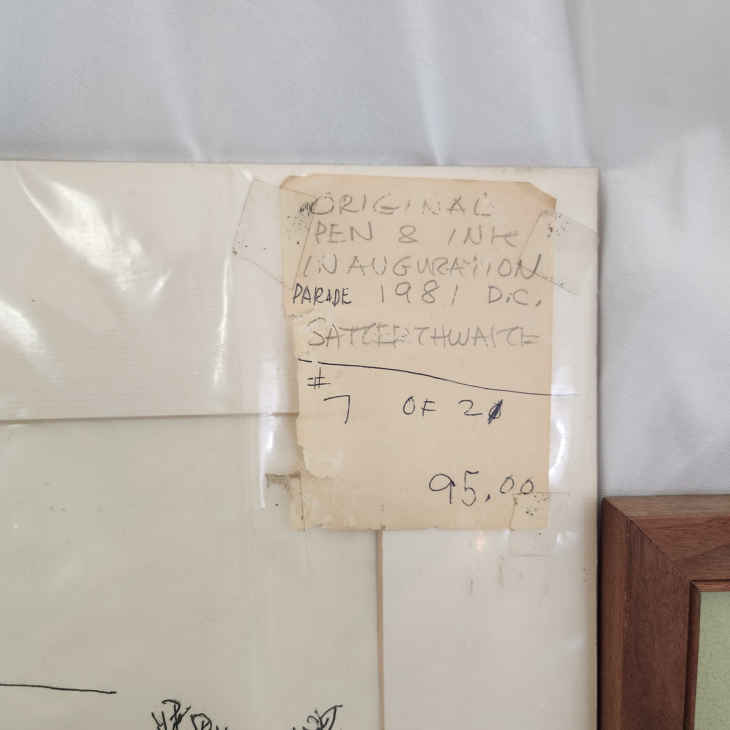 ORIGINAL
PEN & INK
INAUGURATION
PARADE 1981 D.C.
SATTERTHWAITE
#
7 OF 21
95.00